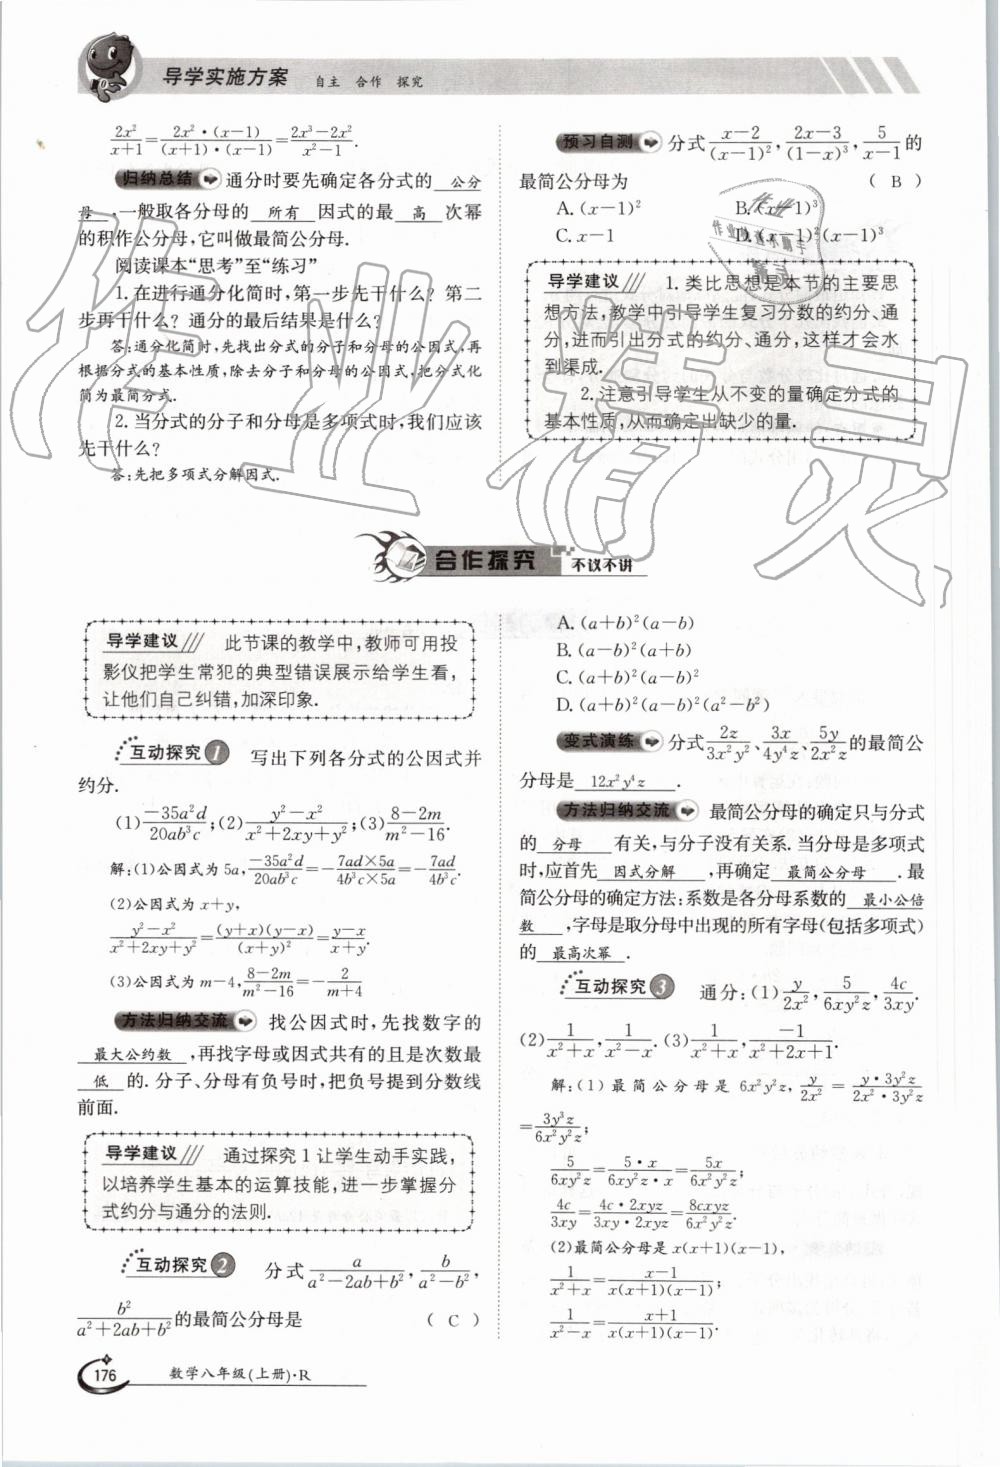 导学实施方案 自主 合作 探究
2x²/(x+1)=2x²·(x-1)/((x+1)·(x-1))=(2x³-2x²)/(x²-1).
归纳总结 通分时要先确定各分式的 公分
母 ,一般取各分母的 所有 因式的最 高 次幂
的积作公分母,它叫做最简公分母.
阅读课本“思考”至“练习”
1. 在进行通分化简时,第一步先干什么? 第二
步再干什么? 通分的最后结果是什么?
答:通分化简时,先找出分式的分子和分母的公因式,再
根据分式的基本性质,除去分子和分母的公因式,把分式化
简为最简分式.
2. 当分式的分子和分母是多项式时,我们应该
先干什么?
答:先把多项式分解因式.
预习自测 分式(x-2)/(x-1)²,(2x-3)/(1-x)³,5/(x-1)的
最简公分母为 ( B )
A. (x-1)² B. (x-1)³
C. x-1 D. (x-1)²(x-1)³
导学建议 1. 类比思想是本节的主要思
想方法,教学中引导学生复习分数的约分、通
分,进而引出分式的约分、通分,这样才会水
到渠成.
2. 注意引导学生从不变的量确定分式的
基本性质,从而确定出缺少的量.
合作探究 不议不讲
导学建议 此节课的教学中,教师可用投
影仪把学生常犯的典型错误展示给学生看,
让他们自己纠错,加深印象.
互动探究1 写出下列各分式的公因式并
约分.
(1)-35a²d/20ab³c;(2)(y²-x²)/(x²+2xy+y²);(3)(8-2m)/(m²-16).
解:(1)公因式为 5a,-35a²d/20ab³c=-7ad×5a/4b³c×5a=-7ad/4b³c.
(2)公因式为 x+y,
(y²-x²)/(x²+2xy+y²)=(y+x)(y-x)/(x+y)²=(y-x)/(x+y).
(3)公因式为 m-4,(8-2m)/(m²-16)=-2/(m+4)
方法归纳交流 找公因式时,先找数字的
最大公约数 ,再找字母或因式共有的且是次数最
低 的. 分子、分母有负号时,把负号提到分数线
前面.
导学建议 通过探究 1 让学生动手实践,
以培养学生基本的运算技能,进一步掌握分
式约分与通分的法则.
互动探究2 分式a/(a²-2ab+b²),b/(a²-b²),
b²/(a²+2ab+b²)的最简公分母是 ( C )
A. (a+b)²(a-b)
B. (a-b)²(a+b)
C. (a+b)²(a-b)²
D. (a+b)²(a-b)²(a²-b²)
变式演练 分式2z/3x²y²、3x/4y⁴z、5y/2x²z的最简公
分母是 12x²y⁴z .
方法归纳交流 最简公分母的确定只与分式
的 分母 有关,与分子没有关系. 当分母是多项式
时,应首先 因式分解 ,再确定 最简公分母 . 最
简公分母的确定方法:系数是各分母系数的 最小公倍
数 ,字母是取分母中出现的所有字母(包括多项式)
的 最高次幂 .
互动探究3 通分:(1)y/2x²,5/6xy²z,4c/3xy.
(2)1/(x²+x),1/(x²-x).(3)1/(x²+x),-1/(x²+2x+1).
解:(1)最简公分母是 6x²y²z,y/2x²=y·3y²z/2x²·3y²z
=3y³z/6x²y²z;
5/6xy²z=5·x/6xy²z·x=5x/6x²y²z;
4c/3xy=4c·2xyz/3xy·2xyz=8cxyz/6x²y²z.
(2)最简公分母是 x(x+1)(x-1),
1/(x²+x)=(x-1)/x(x+1)(x-1);
1/(x²-x)=(x+1)/x(x+1)(x-1).
176 数学八年级(上册)·R
作业精灵